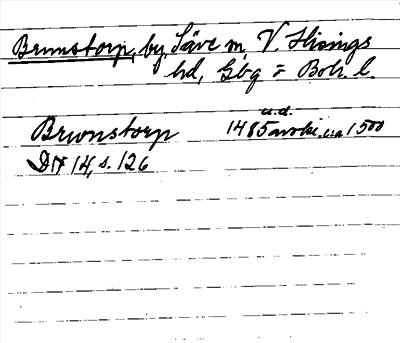 Brunstorp, by, Säve sn, V. Hisings
hd, Gbg o Boh. l.
u.d.
Brwnstorp 1485 avskr. ca 1500
DN 14, s. 126